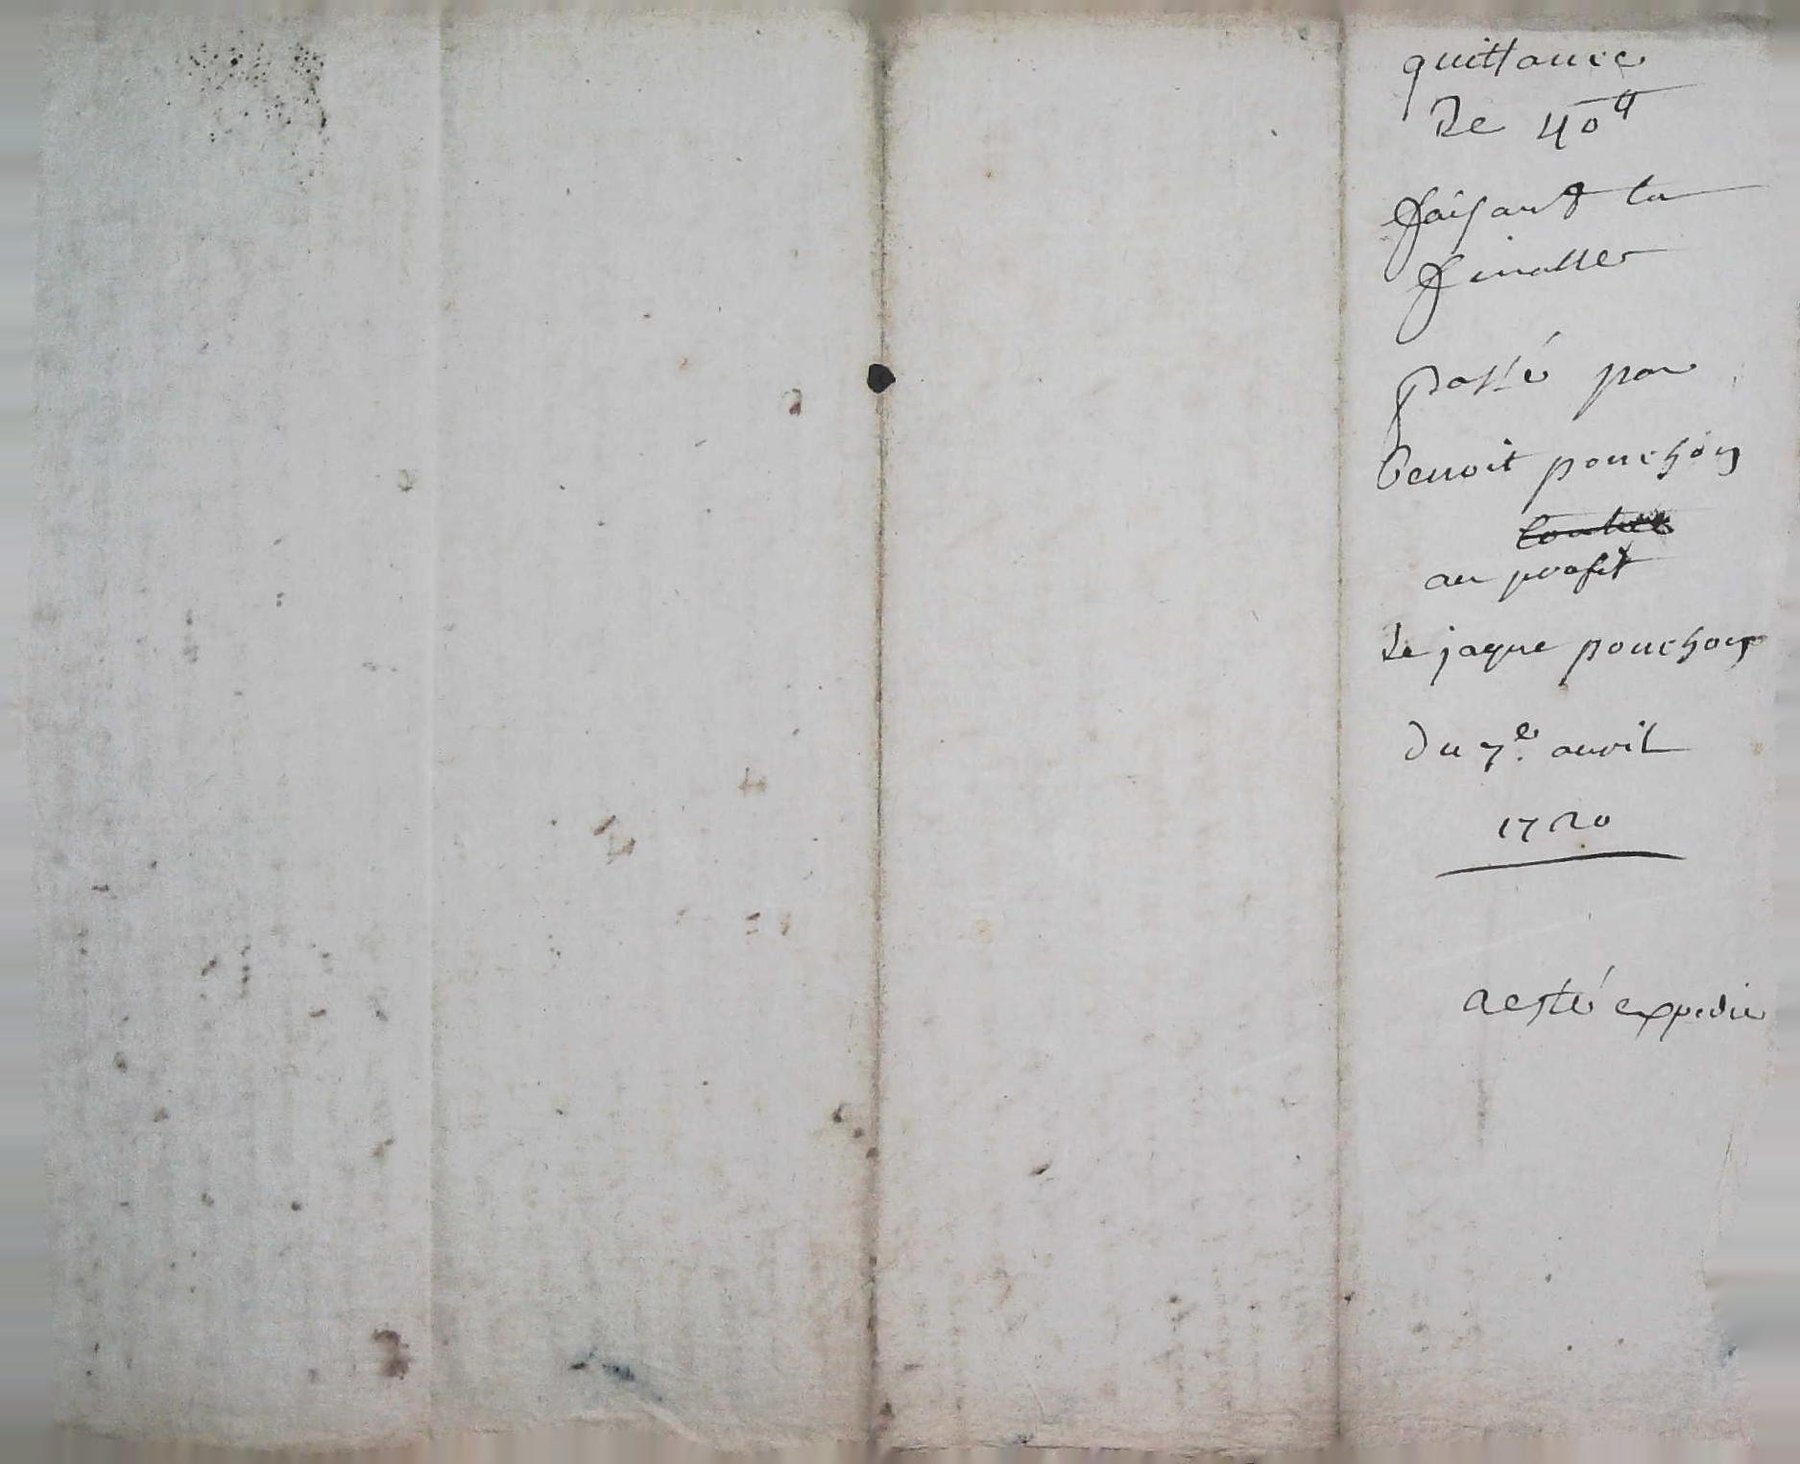 quittance
de 40 ₶
faisant la
finalle
passé par
benoit ponchon
contre
au profit
de jaque ponchon
du 7e. auril
1720
a esté expedié